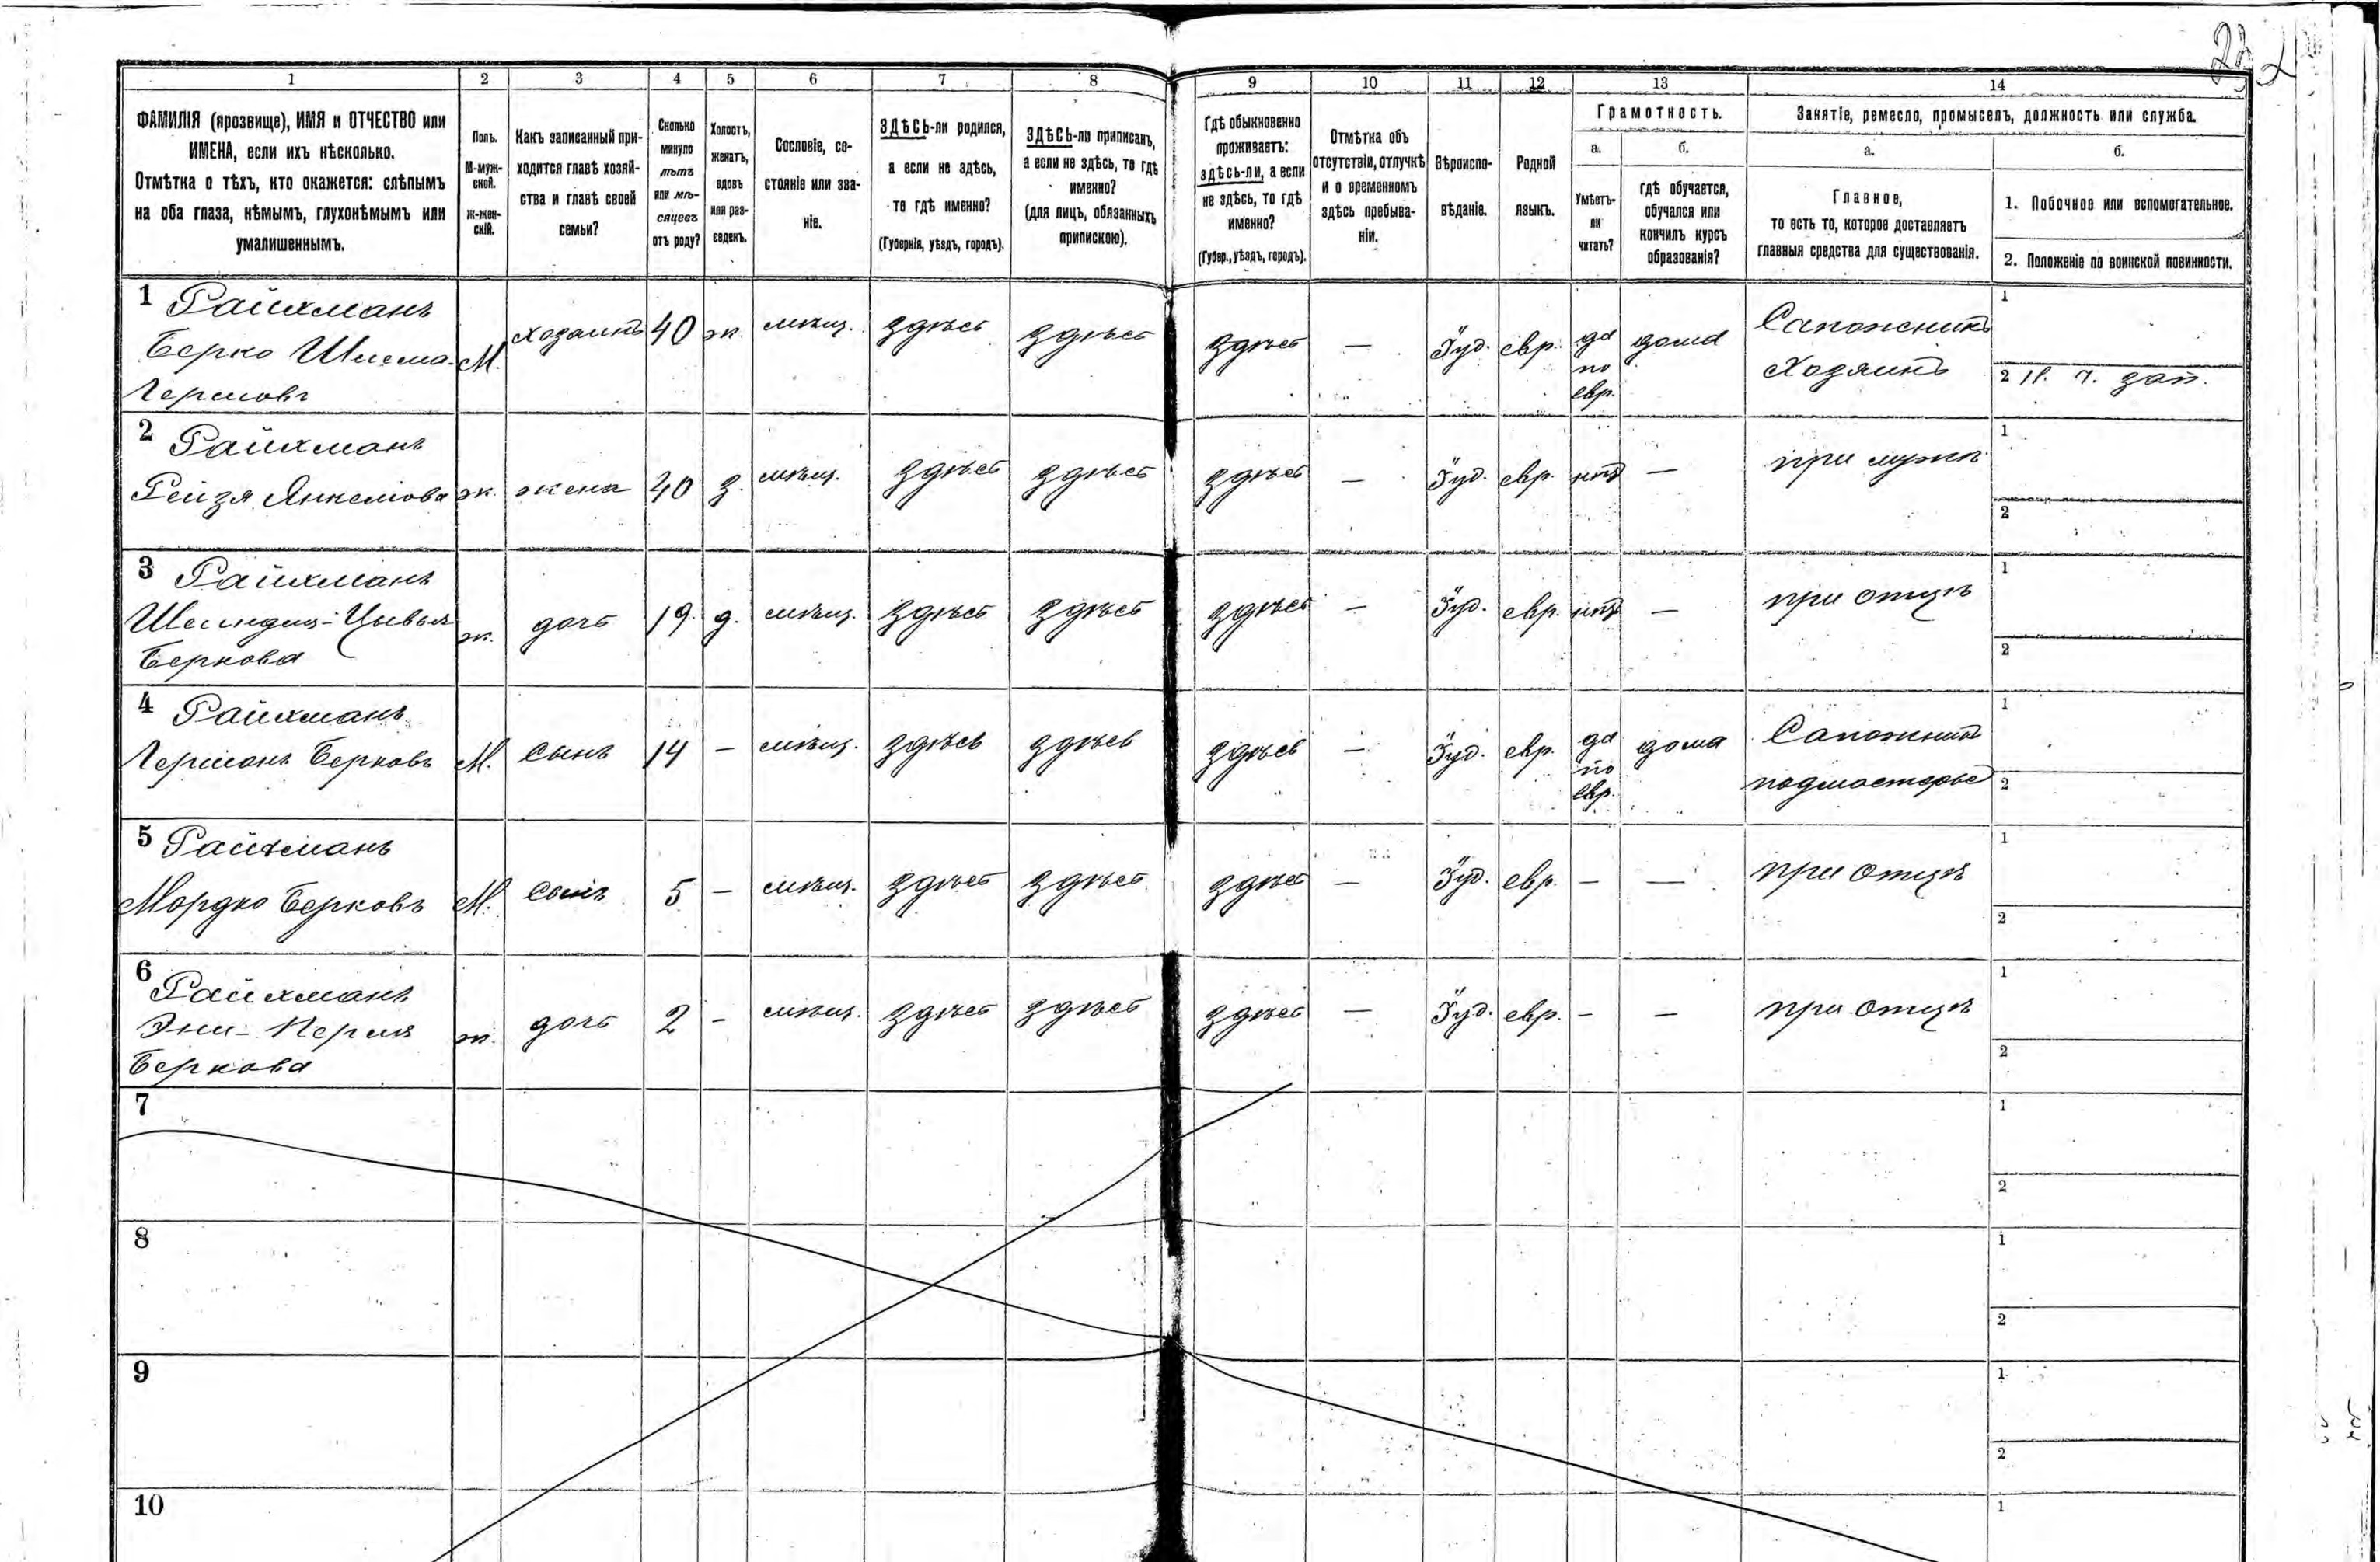 22
1 2 3 4 5 6 7 8 9 10 11 12 13 14
ФАМИЛІЯ (прозвище), ИМЯ и ОТЧЕСТВО или
ИМЕНА, если ихъ нѣсколько.
Отмѣтка о тѣхъ, кто окажется: слѣпымъ
на оба глаза, нѣмымъ, глухонѣмымъ или
умалишеннымъ.
Полъ.
М-муж-
ской.
ж-жен-
скій.
Какъ записанный при-
ходится главѣ хозяй-
ства и главѣ своей
семьи?
Сколько
минуло
лѣтъ
или мѣ-
сяцевъ
отъ роду?
Холостъ,
женатъ,
вдовъ
или раз-
веденъ.
Сословіе, со-
стояніе или зва-
ніе.
ЗДѢСЬ-ли родился,
а если не здѣсь,
то гдѣ именно?
(Губернія, уѣздъ, городъ).
ЗДѢСЬ-ли приписанъ,
а если не здѣсь, то гдѣ
именно?
(для лицъ, обязанныхъ
припискою).
Гдѣ обыкновенно
проживаетъ:
здѣсь-ли, а если
не здѣсь, то гдѣ
именно?
(Губер., уѣздъ, городъ).
Отмѣтка объ
отсутствіи, отлучкѣ
и о временномъ
здѣсь пребыва-
ніи.
Вѣроиспо-
вѣданіе.
Родной
языкъ.
Грамотность.
а.
Умѣетъ-
ли
читать?
б.
гдѣ обучается,
обучался или
кончилъ курсъ
образованія?
Занятіе, ремесло, промыселъ, должность или служба.
а.
Главное,
то есть то, которое доставляетъ
главныя средства для существованія.
б.
1. Побочное или вспомогательное.
2. Положеніе по воинской повинности.
1 Райхманъ
Берко Шлема
Гершовъ
М. хозяинъ 40 ж. мѣщ. здѣсь здѣсь здѣсь — Іуд. евр. да
по
евр.
дома Сапожникъ
Хозяинъ
1
2
2 Райхманъ
Рейзя Янкелова ж. жена 40 з. мѣщ. здѣсь здѣсь здѣсь — Іуд. евр. нѣтъ — при мужѣ
1
2
3 Райхманъ
Шейндля-Цывья
Беркова
ж. дочь 19 д. мѣщ. здѣсь здѣсь здѣсь — Іуд. евр. нѣтъ — при отцѣ
1
2
4 Райхманъ
Гершонъ Берковъ М. сынъ 14 — мѣщ. здѣсь здѣсь здѣсь — Іуд. евр. да
по
евр.
дома Сапожникъ
подмастерье
1
2
5 Райхманъ
Мордко Берковъ М. сынъ 5 — мѣщ. здѣсь здѣсь здѣсь — Іуд. евр. — — при отцѣ
1
2
6 Райхманъ
Перля
Беркова
ж. дочь 2 — мѣщ. здѣсь здѣсь здѣсь — Іуд. евр. — — при отцѣ
1
2
7
1
2
8
1
2
9
1
2
10
1